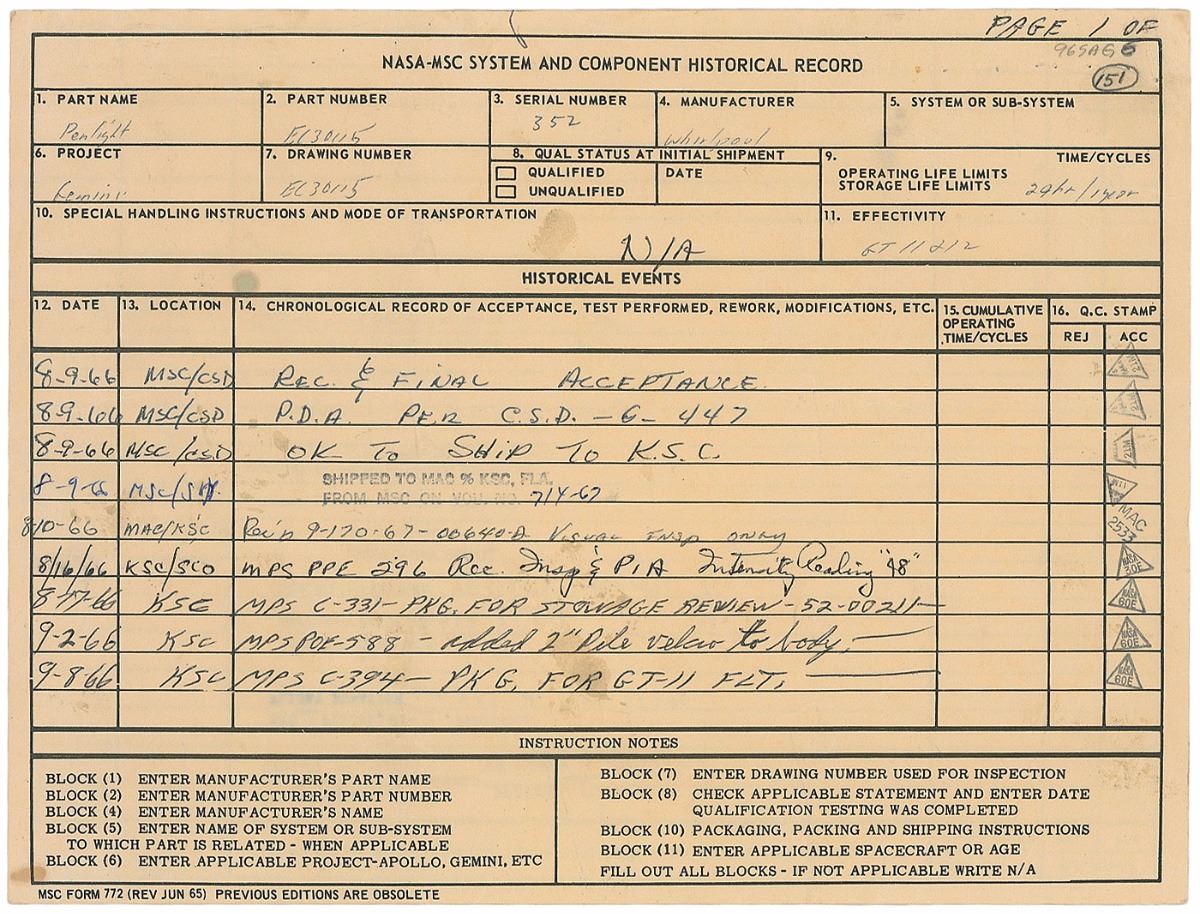 PAGE 1 OF
NASA-MSC SYSTEM AND COMPONENT HISTORICAL RECORD
151
1. PART NAME
Penlight
2. PART NUMBER
EC30115
3. SERIAL NUMBER
352
4. MANUFACTURER
Whirlpool
5. SYSTEM OR SUB-SYSTEM
6. PROJECT
Gemini
7. DRAWING NUMBER
EC30115
8. QUAL STATUS AT INITIAL SHIPMENT
QUALIFIED
UNQUALIFIED
DATE
9. TIME/CYCLES
OPERATING LIFE LIMITS
STORAGE LIFE LIMITS /1year
10. SPECIAL HANDLING INSTRUCTIONS AND MODE OF TRANSPORTATION
N/A
11. EFFECTIVITY
GT 11 & 12
HISTORICAL EVENTS
12. DATE 13. LOCATION 14. CHRONOLOGICAL RECORD OF ACCEPTANCE, TEST PERFORMED, REWORK, MODIFICATIONS, ETC. 15. CUMULATIVE OPERATING TIME/CYCLES 16. Q.C. STAMP
REJ ACC
8-9-66 MSC/CSD REC. & FINAL ACCEPTANCE
8-9-66 MSC/CSD P.D.A. PER C.S.D. - G - 447
8-9-66 MSC/CSD OK TO SHIP TO K.S.C. 21M
8-9-66 MSC/ SHIPPED TO MAC % KSC, FLA.
FROM MSC ON VOU. NO. 714-67
8/10-66 MAC/KSC Rec'd 9-170-67-00640-A VISUAL INSP ONLY MAC 2533
8/16/66 KSC/SCO MPS PPE 296 Rec. Insp & PIA Intensity Reading "48" NASA 30E
8-17-66 KSC MPS C-331- PKG. FOR STOWAGE REVIEW - 52-00211- NASA 60E
9-2-66 KSC MPS POE-588 - added 2" Pile velcro to body. NASA 60E
9-8-66 KSC MPS C-394- PKG. FOR GT-11 FLT. NASA 60E
INSTRUCTION NOTES
BLOCK (1) ENTER MANUFACTURER'S PART NAME
BLOCK (2) ENTER MANUFACTURER'S PART NUMBER
BLOCK (4) ENTER MANUFACTURER'S NAME
BLOCK (5) ENTER NAME OF SYSTEM OR SUB-SYSTEM
TO WHICH PART IS RELATED - WHEN APPLICABLE
BLOCK (6) ENTER APPLICABLE PROJECT-APOLLO, GEMINI, ETC
BLOCK (7) ENTER DRAWING NUMBER USED FOR INSPECTION
BLOCK (8) CHECK APPLICABLE STATEMENT AND ENTER DATE
QUALIFICATION TESTING WAS COMPLETED
BLOCK (10) PACKAGING, PACKING AND SHIPPING INSTRUCTIONS
BLOCK (11) ENTER APPLICABLE SPACECRAFT OR AGE
FILL OUT ALL BLOCKS - IF NOT APPLICABLE WRITE N/A
MSC FORM 772 (REV JUN 65) PREVIOUS EDITIONS ARE OBSOLETE